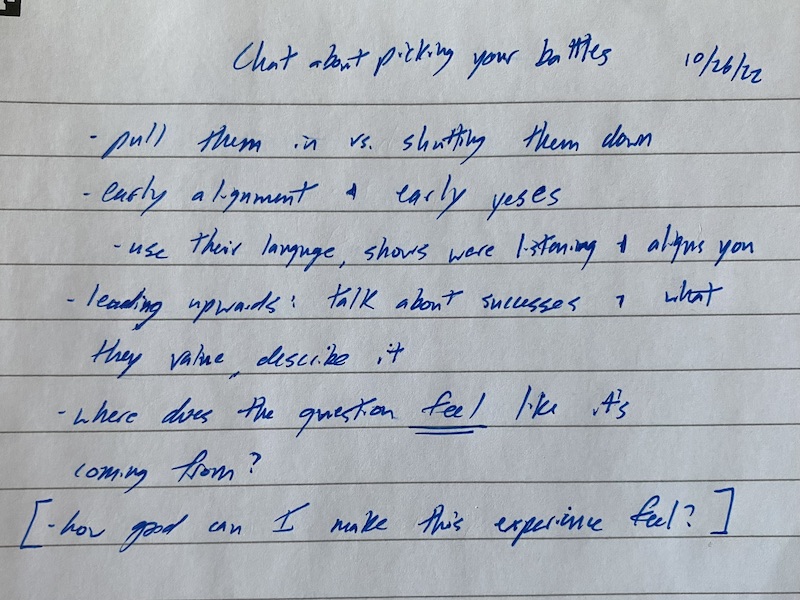 Chat about picking your battles 10/26/22
- pull them in vs. shutting them down
- early alignment & early yeses
- use their languge, shows were listening & aligns you
- leading upwards: talk about successes & what
they value, describe it
- where does the question feel like it's
coming from?
[- how good can I make this experience feel?]